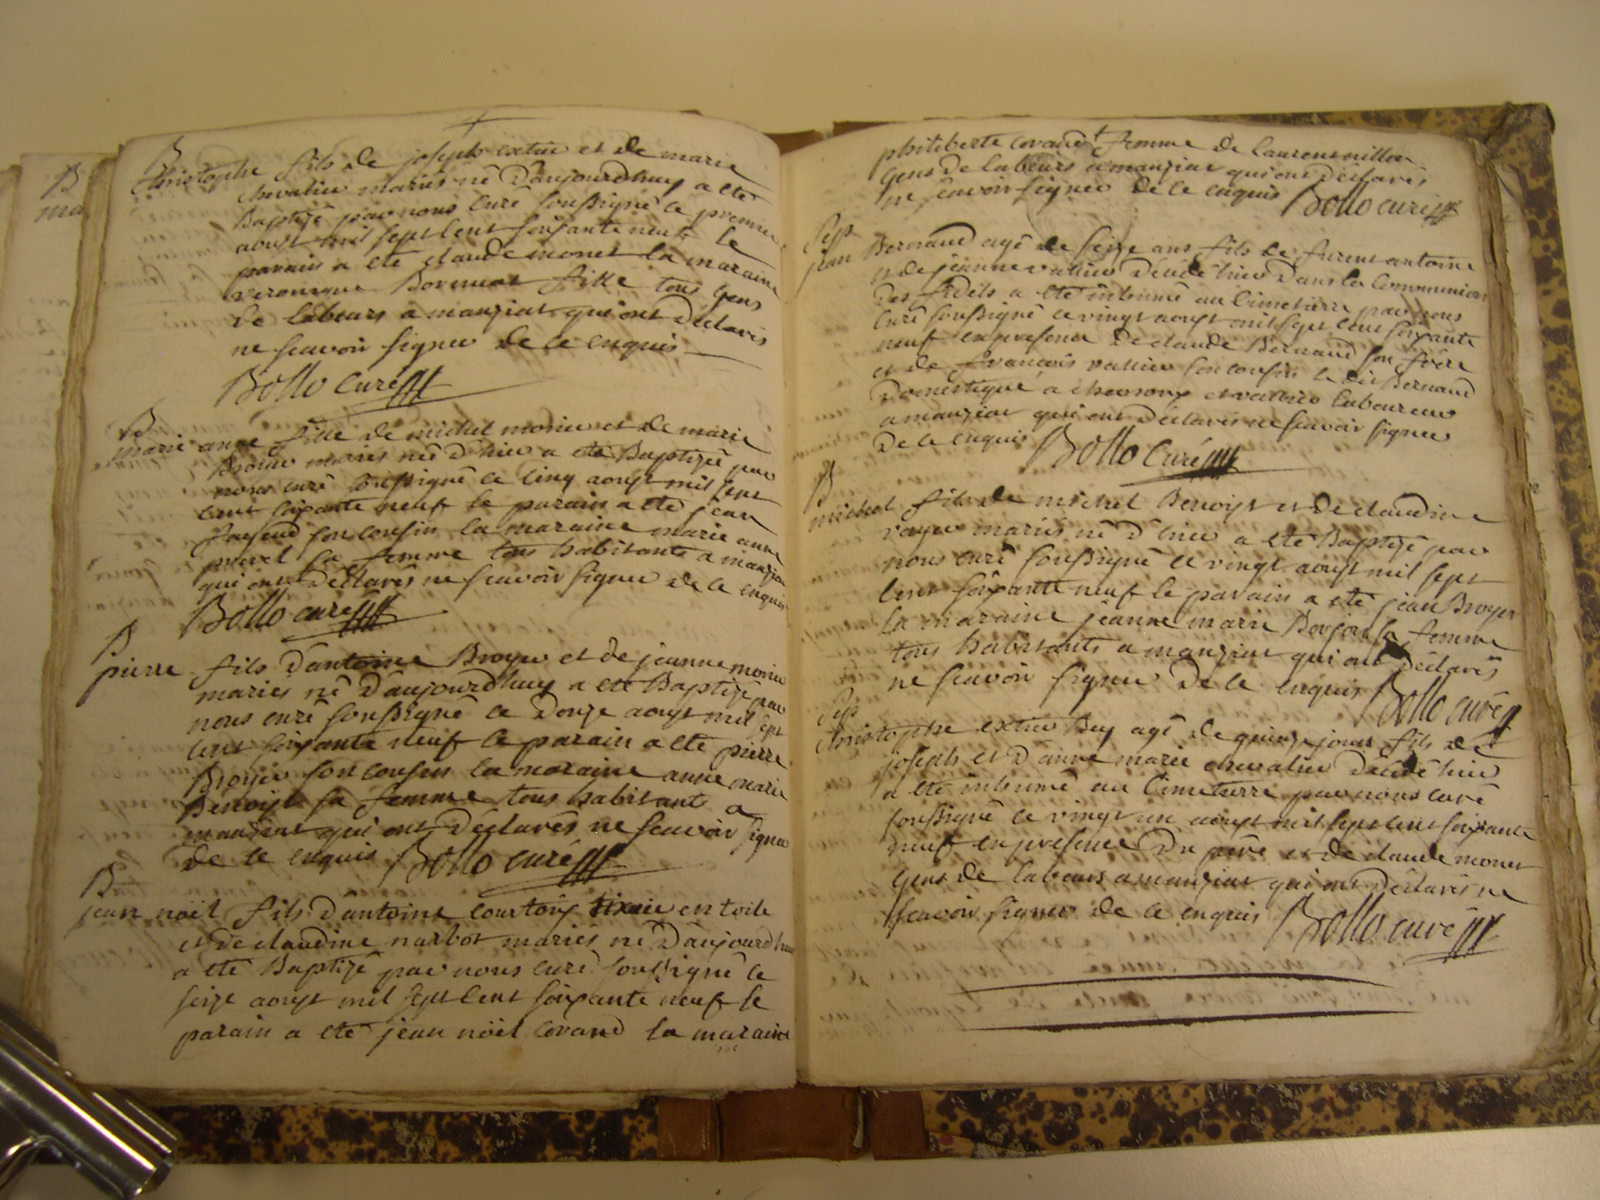 B
Christophe fils de joseph extier et de marie
chevalier mariés né d'aujourdhuy a eté
Baptizé par nous curé soussigné ce premier
aoust mil sept cent soixante neuf le
parain a eté claude monet la maraine
veronique Bornuat fille tous gens
de labeurs a manziat qui ont declarés
ne scavoir signer de ce enquis
Bollo curé
B
marie anne fille de michel morier et de marie
Broier mariés née d'hier a eté Baptizée par
nous curé soussigné ce cinq aoust mil sept
cent soixante neuf le parain a eté jean
son cousin la maraine marie anne
purel sa femme tous habitants a manziat
qui ont declarés ne scavoir signer de ce enquis
Bollo curé
B
pierre fils d'antoine Broyer et de jeanne morier
mariés né d'aujourdhuy a eté Baptizé par
nous curé soussigné ce douze aoust mil sept
cent soixante neuf le parain a eté pierre
Broyer son cousin la maraine anne marie
Benoist sa femme tous habitants a
manziat qui ont declarés ne scavoir signer
de ce enquis Bollo curé
B
jean nöel fils d'antoine courtois tixier en toile
et de claudine narbot mariés né d'aujourdhuy
a eté Baptizé par nous curé soussigné ce
seize aoust mil sept cent soixante neuf le
parain a eté jean nöel covand la maraine
B
ma
philiberte covand femme de laurent millon
gens de labeurs a manziat qui ont declarés
ne scavoir signer de ce enquis Bollo curé
Sep
jean Bernand agé de seize ans fils de furent antoine
et de jeanne vallier décédé hier dans la Communion
des fidels a eté inhumé au Cimetierre par nous
curé soussigné ce vingt aoust mil sept cent soixante
neuf en presence de claude Bernand son frere
et de francois vallier son cousin le dit Bernand
domestique a chevroux et vallier laboureur
a manziat qui ont déclarés ne scavoir signer
de ce enquis Bollo curé
B
michel fils de michel Benoist et de claudine
royer mariés né d'hier a eté Baptizé par
nous curé soussigné ce vingt aoust mil sept
cent soixante neuf le parain a eté jean Broyer
la maraine jeanne marie sa femme
tous habitants a manziat qui ont declarés
ne scavoir signer de ce enquis Bollo curé
Sep
Christophe extier Bey agé de quinze jours fils de
joseph et d'anne marie chevalier décédé hier
a eté inhumé au Cimetierre par nous curé
soussigné ce vingt un aoust mil sept cent soixante
neuf en presence du père et de claude monet
gens de labeurs a manziat qui ont déclarés ne
scavoir signer de ce enquis Bollo curé